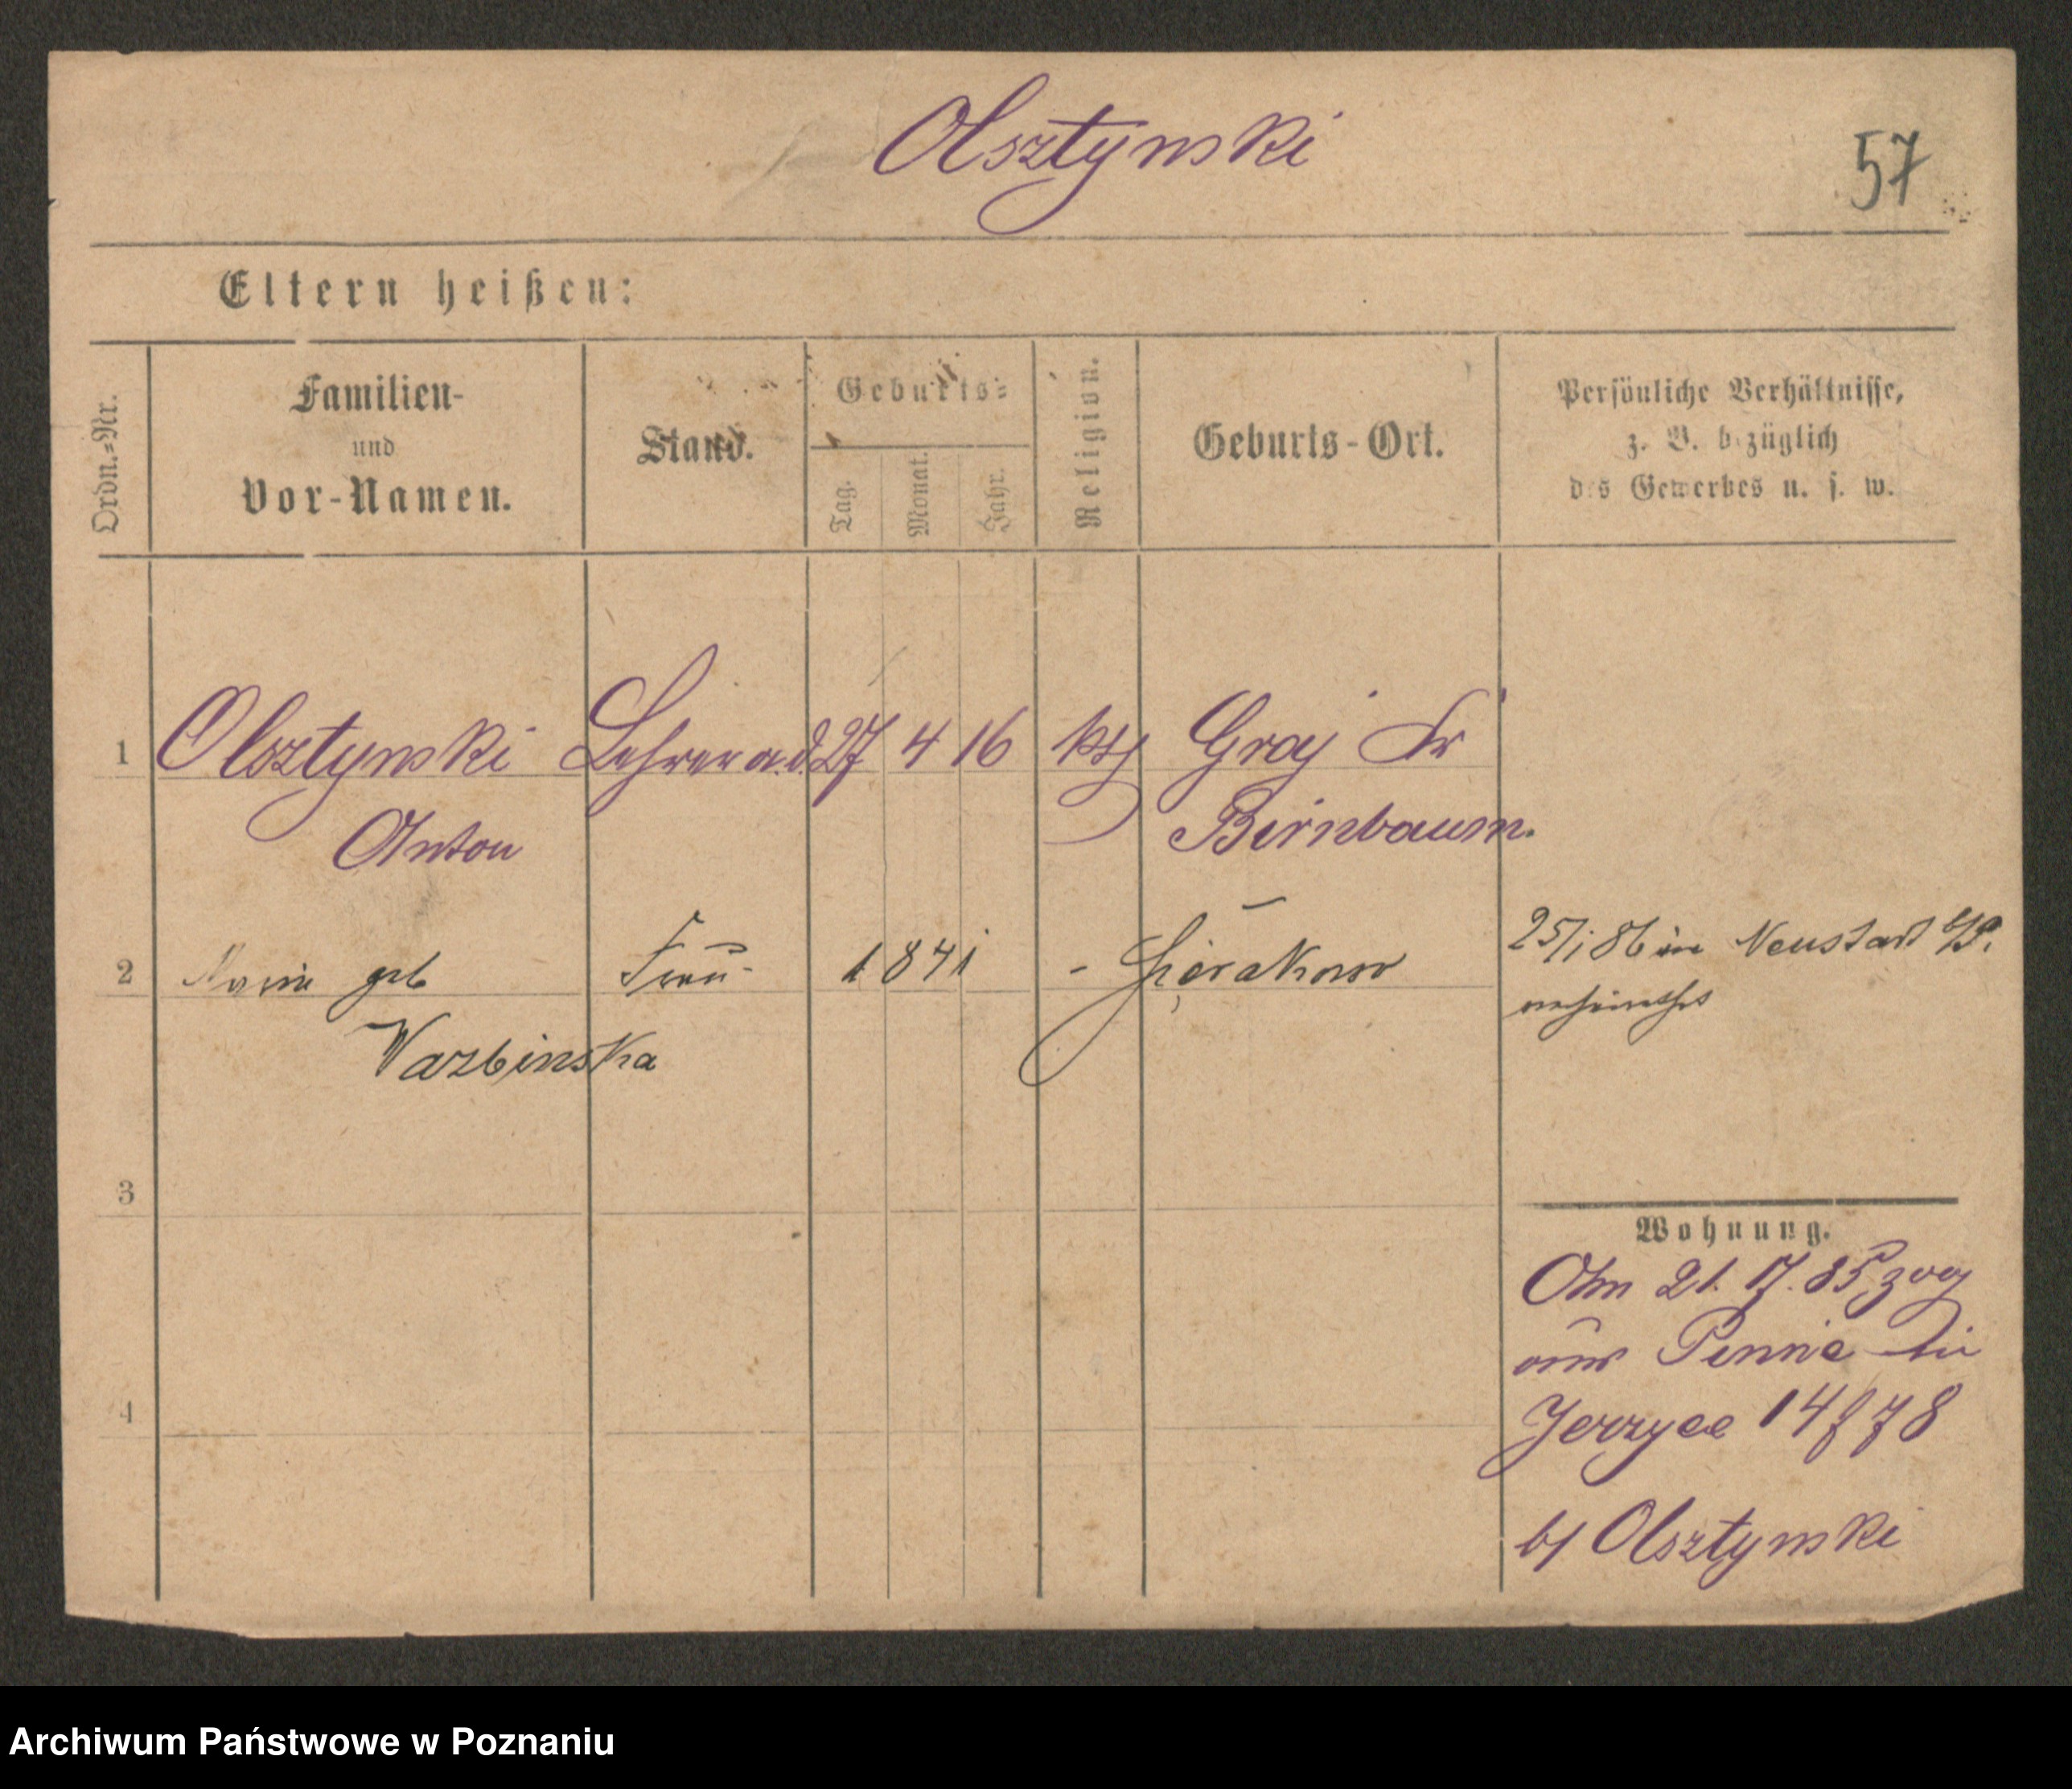 Olsztynski
57
Eltern heißen:
Ordn.=Nr.
Familien-
und
Vor-Namen.
Stand.
Geburts=
Tag.
Monat.
Jahr.
Religion.
Geburts-Ort.
Persönliche Verhältnisse,
z. B. bezüglich
des Gewerbes u. s. w.
1 Olsztynski Lehrer a.d. 27 4 16 kth Graj Kr
Anton Birnbaum.
2 Marie geb Frau 1841 - Sierakowo 25/1 86 in Neustadt b/P.
Warbinska verheirathet
3
Wohnung.
Am 21. 7. 85 zog
aus Pinne in
4 Jerzyce 14 f 78
b/ Olsztynski
Archiwum Państwowe w Poznaniu